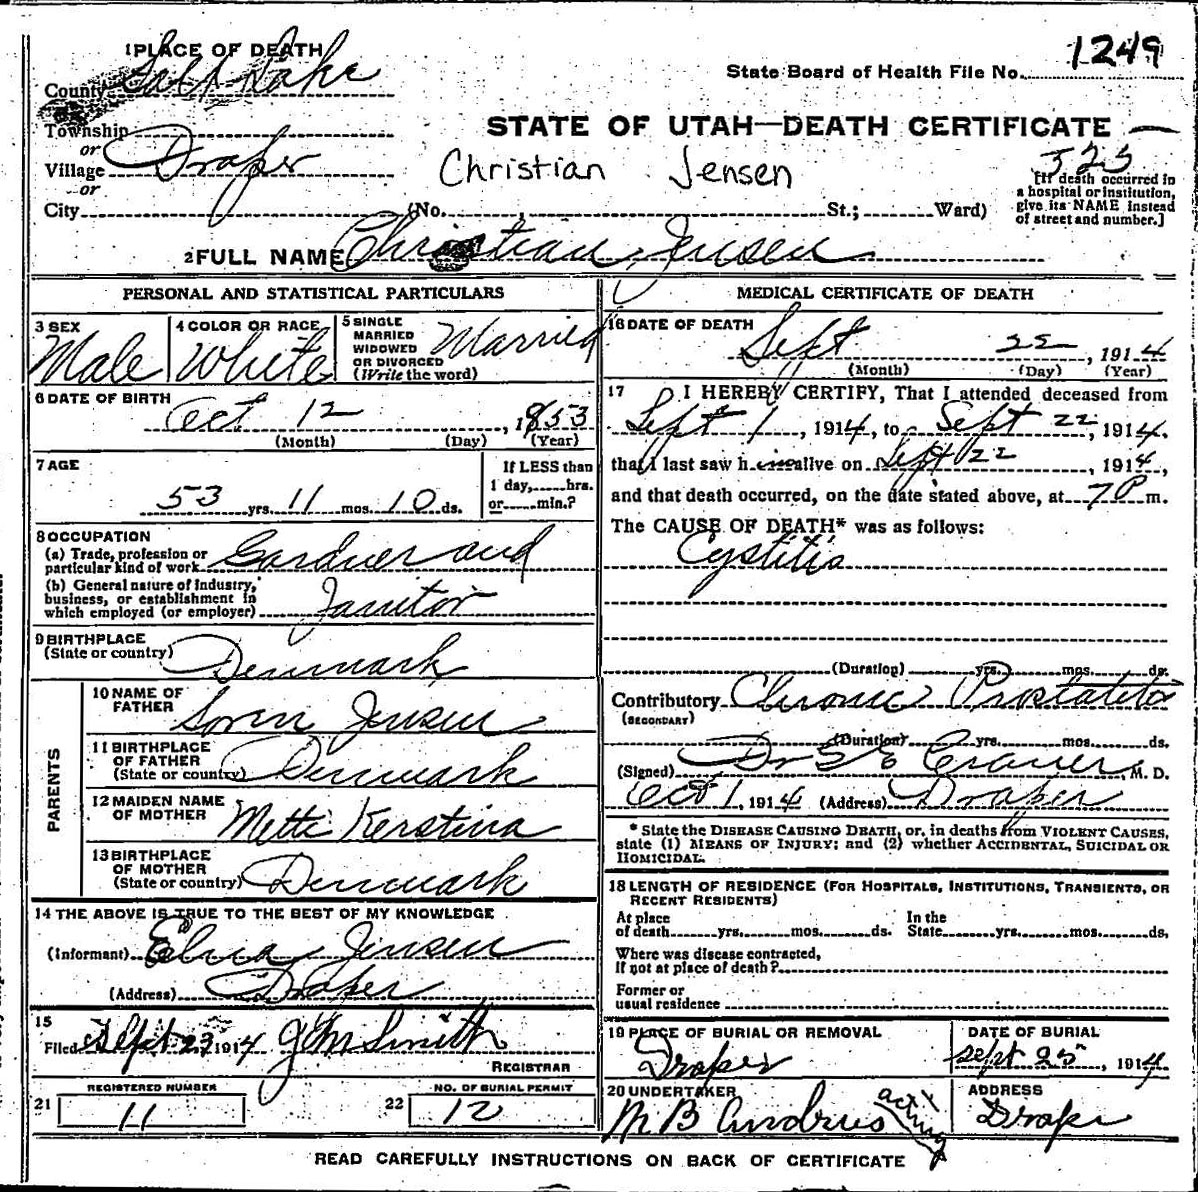 1 PLACE OF DEATH
County Salt Lake
State Board of Health File No. 1249
Township
or
Village Draper
or
City (No. , St.; Ward)
STATE OF UTAH—DEATH CERTIFICATE
Christian Jensen
[If death occurred in
a hospital or institution,
give its NAME instead
of street and number.]
2 FULL NAME Christian Jensen
PERSONAL AND STATISTICAL PARTICULARS
3 SEX
Male
4 COLOR OR RACE
White
5 SINGLE
MARRIED
WIDOWED
OR DIVORCED
(Write the word)
Married
6 DATE OF BIRTH
Oct 12, 1853
(Month) (Day) (Year)
7 AGE
53 yrs. 11 mos. 10 ds.
If LESS than
1 day, hrs.
or min.?
8 OCCUPATION
(a) Trade, profession or
particular kind of work Gardner and
(b) General nature of Industry,
business, or establishment in
which employed (or employer) Janitor
9 BIRTHPLACE
(State or country) Denmark
PARENTS
10 NAME OF
FATHER Soren Jensen
11 BIRTHPLACE
OF FATHER
(State or country) Denmark
12 MAIDEN NAME
OF MOTHER Mette Kerstina
13 BIRTHPLACE
OF MOTHER
(State or country) Denmark
14 THE ABOVE IS TRUE TO THE BEST OF MY KNOWLEDGE
(Informant) Elna Jensen
(Address) Draper
15
Filed Sept 23 1914 J M Smith
REGISTRAR
REGISTERED NUMBER
21 11
NO. OF BURIAL PERMIT
22 12
MEDICAL CERTIFICATE OF DEATH
16 DATE OF DEATH
Sept 22, 1914
(Month) (Day) (Year)
17 I HEREBY CERTIFY, That I attended deceased from
Sept 1, 1914, to Sept 22, 1914.
that I last saw him alive on Sept 22, 1914,
and that death occurred, on the date stated above, at 7 P m.
The CAUSE OF DEATH* was as follows:
Cystitis
(Duration) yrs. mos. ds.
Contributory Chronic Prostatitis
(SECONDARY)
(Duration) yrs. mos. ds.
(Signed) Dr M. D.
Oct 1, 1914 (Address) Draper
* State the DISEASE CAUSING DEATH, or, in deaths from VIOLENT CAUSES,
state (1) MEANS OF INJURY; and (2) whether ACCIDENTAL, SUICIDAL OR
HOMICIDAL.
18 LENGTH OF RESIDENCE (FOR HOSPITALS, INSTITUTIONS, TRANSIENTS, OR
RECENT RESIDENTS)
At place
of death yrs. mos. ds.
In the
State yrs. mos. ds.
Where was disease contracted,
If not at place of death?
Former or
usual residence
19 PLACE OF BURIAL OR REMOVAL
Draper
DATE OF BURIAL
Sept 25, 1914
20 UNDERTAKER
M B Andrus acting
ADDRESS
Draper
READ CAREFULLY INSTRUCTIONS ON BACK OF CERTIFICATE